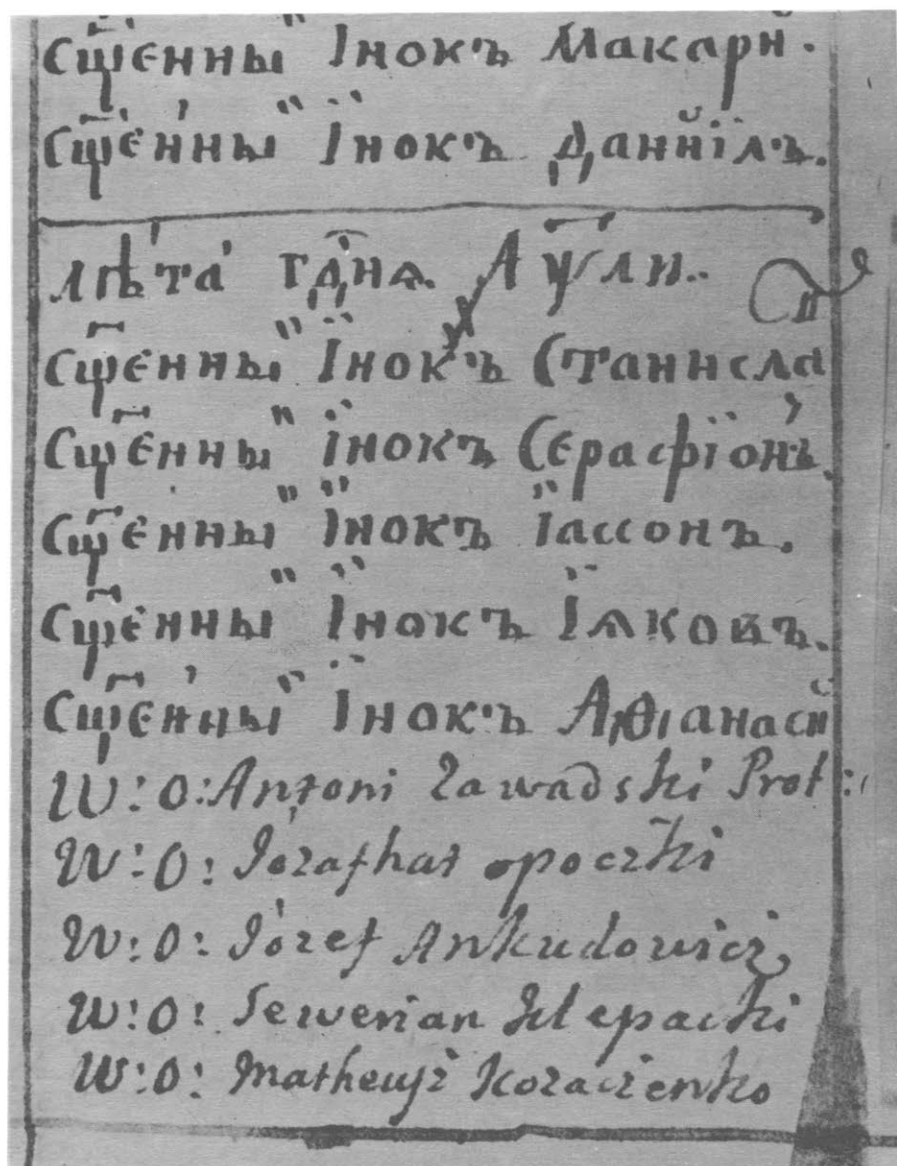 Сщ҃енны" Інокъ Макарй.
Сщ҃е́нны" Інокъ Даниїлъ.
лѣта̀ гд҃нѧ. АѱЛИ.
Сщ҃енны" Інокъ Станисла
Сщ҃енны" Інокъ Серафіонъ.
Сщ҃енны" Інокъ Іассонъ.
Сщ҃енны" Інокъ Іѧковъ.
Сщ҃е́нны" Інокъ Аѳанасй
W:O: Antoni Zawadski Prot:
W:O: Józafhat opoczki
W:O: Józef Ankudowicz
W:O: Sewerian Klepacki
W:O: Matheusz Kozaczenko